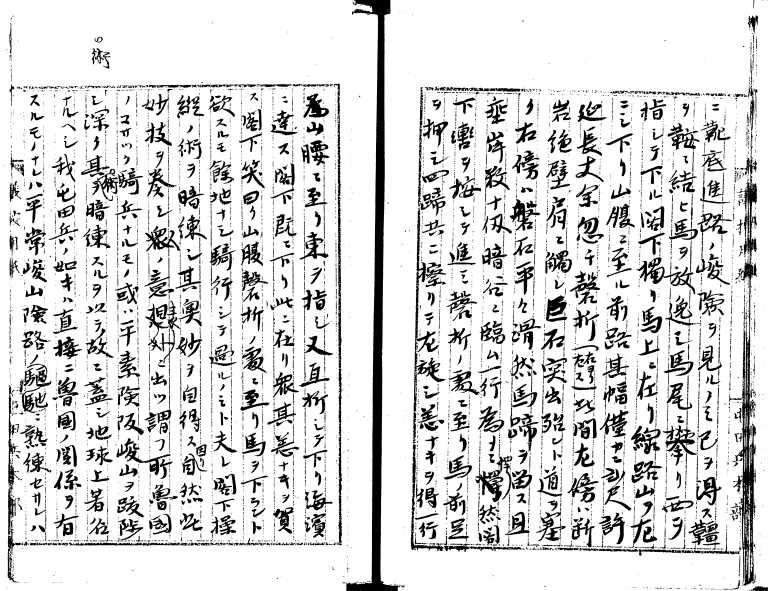 ニ靴底進路ノ峻険ヲ見ルノミ已ヲ得ス韁
ヲ鞍ニ結ヒ馬ヲ放逸シ馬尾ニ攀リ西ヲ
指シテ下ル閣下獨リ馬上ニ在リ線路山ノ左
ニシ下リ山腹ニ至ル前路其幅僅カニ尺許
延長丈余忽チ磬折此間左傍ハ断
岩絶壁肩ニ觸レ巨石突出殆ント道ヲ塞
ク右傍ハ磐石平々滑然馬蹄ヲ留ス且
垂岸数十仭暗谷ニ臨ム一行為メニ慄然閣
下轡ヲ按シテ進ミ磬折ノ處ニ至リ馬ノ前足
ヲ押シ四蹄共ニ擦リテ左旋シ恙ナキヲ得一行
為山腰ニ至リ東ヲ指シ又直折シテ下リ海濱
ニ達ス閣下既ニ下リ此ニ在リ衆其恙ナキヲ賀
ス閣下笑曰ク山腹磬折ノ處ニ至リ馬ヲ下ラント
欲スルモ餘地ナシ騎行シテ過ルノミト夫レ閣下操
縦ノ術ヲ暗練シ其奥妙ヲ自得ス自然此
妙技ヲ奏シ衆ノ意想外ニ出ツ謂フ所魯國
ノコサツク騎兵ナルモノ或ハ平素険阪峻山ヲ跋渉
シ深ク其術ヲ暗練スルヲ以テ故ニ蓋シ地球上著名
ナルヘシ我屯田兵ノ如キハ直接ニ魯國ノ関係ヲ有
スルモノナレハ平常峻山険路ノ驅馳ニ熟練セサレハ
術